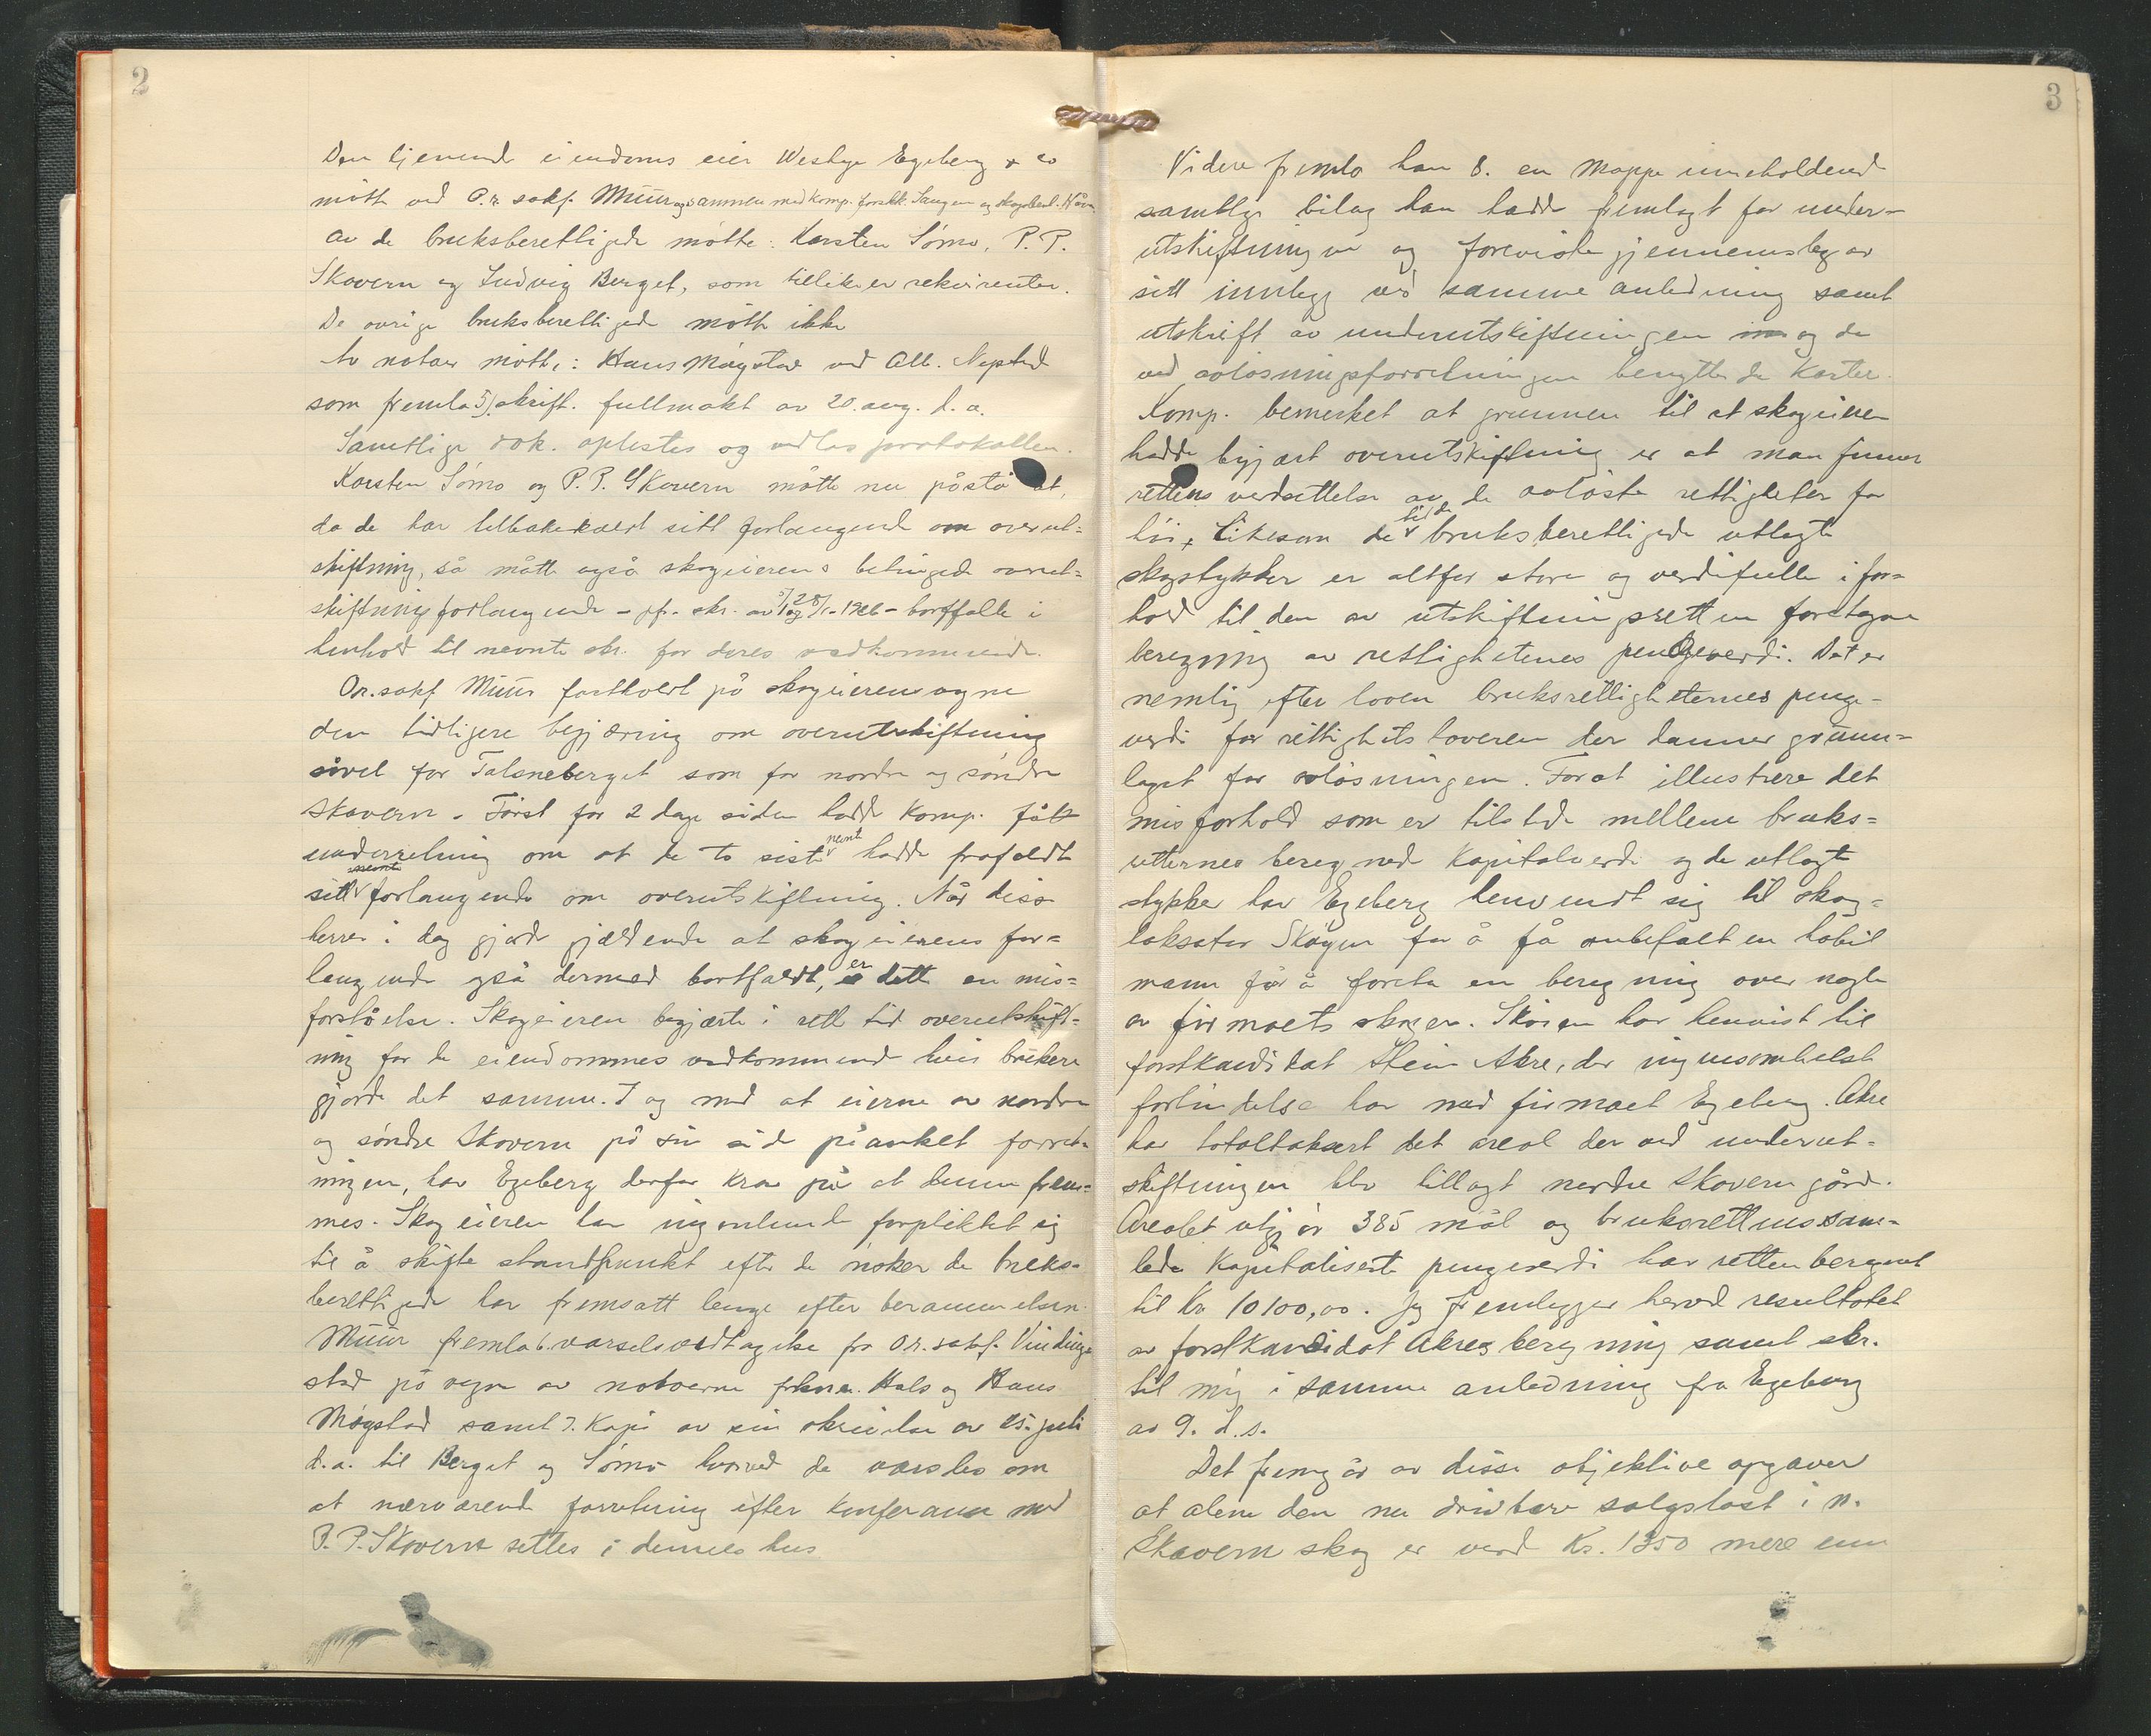 2
Den tjenende eiendoms eier Westye Egeberg & co
møtte ved O.r. sakf. Müür og sammen med komp. forstk. Saugen og skogbest.
Av de bruksberettigede møtte: Karsten Sømo, P. P.
Skovern og Ludvig Berget, som tillike er rekvirenter.
De øvrige bruksberettigede møtte ikke
Av naboer møtte: Hans Møystad ved Alb. Nepstad
som fremla 5) skriftl. fullmakt av 20. aug. d. a.
Samtlige dok. oplestes og vedlas protokollen.
Karsten Sømo og P. P. Skovern måtte nu påstå at,
da de har tilbakekaldt sitt forlangende om overut-
skiftning, så måtte også skogeierens betingede overut-
skiftningsforlangende - jfr. skr. av - bortfalle i
henhold til nevnte skr. for deres vedkommende.
O.r. sakf. Müür fastholdt på skogeierens vegne
den tidligere begjæring om overutskiftning
såvel for Talsneberget som for nordre og søndre
Skovern. Først for 2 dage siden hadde komp. fått
underretning om at de to sist nevnte hadde frafaldt
sitt forlangende om overutskiftning. Når disse
herrer i dag gjorde gjældende at skogeierens for-
langende også dermed bortfaldt, er dette en mis-
forståelse. Skogeieren begjærte i rett tid overutskift-
ning for de eiendommes vedkommende hvis brukere
gjorde det samme. I og med at eierne av nordre
og søndre Skovern på sin side påanket forret-
ningen, har Egeberg derfor krav på at denne frem-
mes. Skogeieren har ingenlunde forpliktet sig
til å skifte standpunkt efter de ønsker de bruks-
berettigede har fremsatt lenge efter berammelsen.
Müür fremla 6. varselsvedtagelse fra O.r. sakf. Vinding-
stad på vegne av naboerne Hals og Hans
Møystad samt 7. Kopi av sin skrivelse av 25. juli
d. a. til Berget og Sømo hvorved de varsles om
at nærværende forretning efter konferanse med
P. P. Skovern settes i dennes hus
3
Videre fremla han 8. en mappe inneholdende
samtlige bilag han hadde fremlagt for under-
utskiftningen og foreviste gjennemslag av
sitt innlegg ved samme anledning samt
utskrift av underutskiftningen og de
ved avløsningsforretningen benyttede karter.
Komp. bemerket at grunnen til at skogeieren
hadde begjært overutskiftning er at man finner
rettens verdsettelse av de avløste rettigheter for
høi, likesom de til de bruksberettigede utlagte
skogstykker er altfor store og verdifulle i for-
hold til den av utskiftningsretten foretagne
beregning av rettighetenes pengeverdi. Det er
nemlig efter loven bruksrettigheternes penge-
verdi for rettighetshaveren der danner grunn-
laget for avløsningen. For at illustrere det
misforhold som er tilstede mellem bruks-
retternes beregnede kapitalverdi og de utlagte
stykker har Egeberg henvendt sig til skog-
taksator Skøyen for å få anbefalt en habil
mann for å foreta en beregning over nogle
av firmaets skoger. Skøien har henvist til
forstkandidat Stein Akre, der ingensomhelst
forbindelse har med firmaet Egeberg. Akre
har totaltaksert det areal der ved underut-
skiftningen blev tillagt nordre Skovern gård.
Arealet utgjør 385 mål og bruksrettens sam-
lede kapitaliserte pengeverdi har retten beregnet
til kr 10100,00. Jeg fremlegger herved resultatet
av forstkandidat Akres beregning samt skr.
til mig i samme anledning fra Egeberg
av 9. d. s.
Det fremgår av disse objektive opgaver
at alene den nu drivbare salgslast i n.
Skovern skog er verd Kr. 1350 mere enn